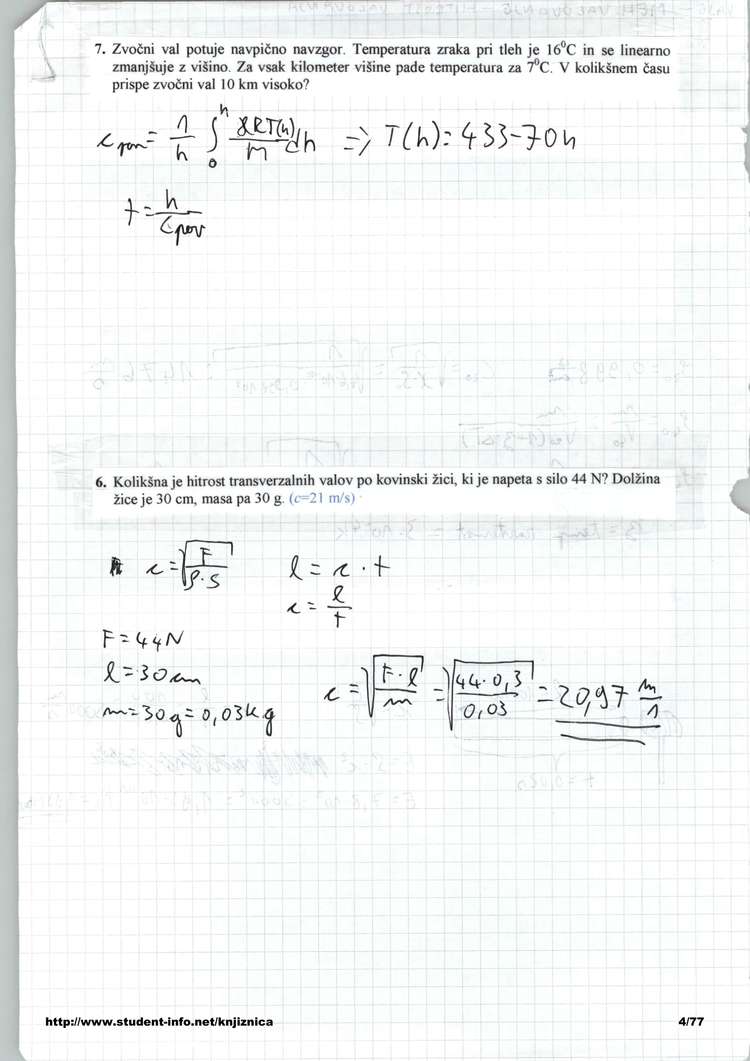 7. Zvočni val potuje navpično navzgor. Temperatura zraka pri tleh je 16⁰C in se linearno
zmanjšuje z višino. Za vsak kilometer višine pade temperatura za 7⁰C. V kolikšnem času
prispe zvočni val 10 km visoko?
c pov = 1/h ∫₀ʰ ϰRT(h)/M dh => T(h) = 433-70h
t = h/c pov
6. Kolikšna je hitrost transverzalnih valov po kovinski žici, ki je napeta s silo 44 N? Dolžina
žice je 30 cm, masa pa 30 g. (c=21 m/s)
c = √(F/(ρ·S)) l = c · t
c = l/t
F = 44N
l = 30 cm
c = √(F·l/m) = √(44·0,3/0,03) = 20,97 m/s
m = 30g = 0,03kg
http://www.student-info.net/knjiznica 4/77